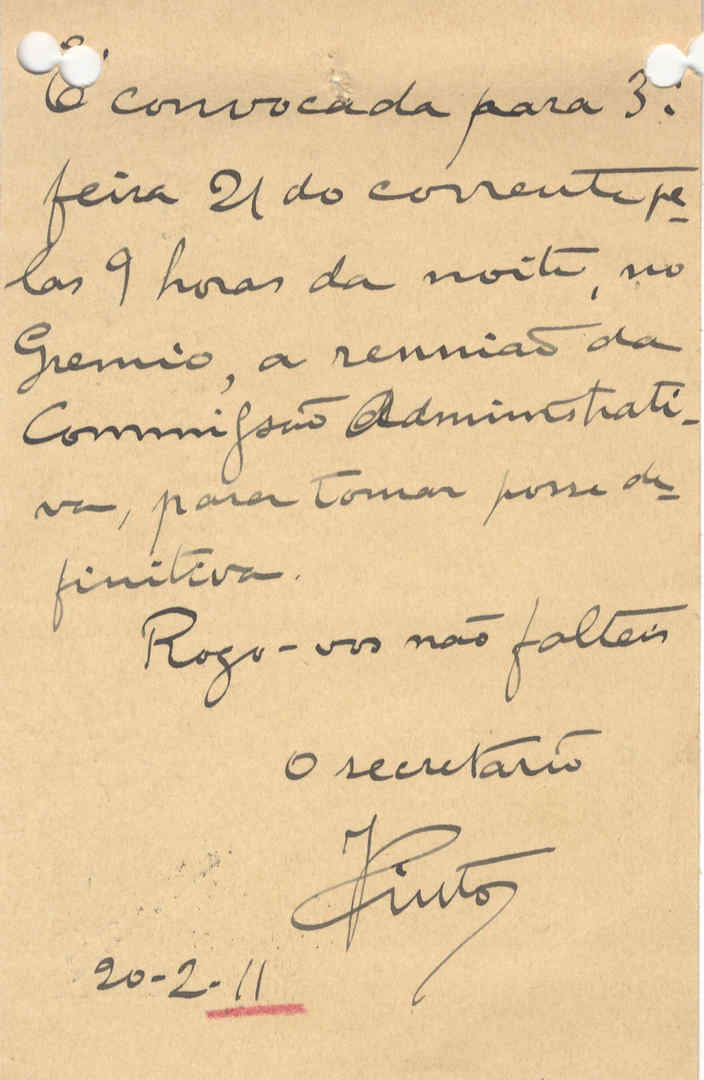 É convocada para 3.ª
feira 21 do corrente pe-
las 9 horas da noite, no
Gremio, a reunnião da
Commissão Administrati-
va, para tomar posse de-
finitiva.
Rogo-vos não falteis
O secretario
Pinto
20-2-11